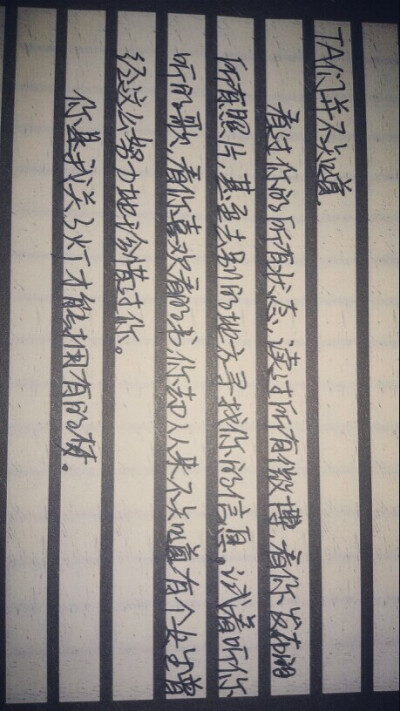 TA们并不知道，
看过你的所有状态，读过所有微博，看你发布的
所有照片，甚至去别的地方寻找你的信息，试着听你
听的歌，看你喜欢看的书，你却从来不知道有个女生曾
经这么努力地珍惜过你。
你是我关了灯才能拥有的梦。